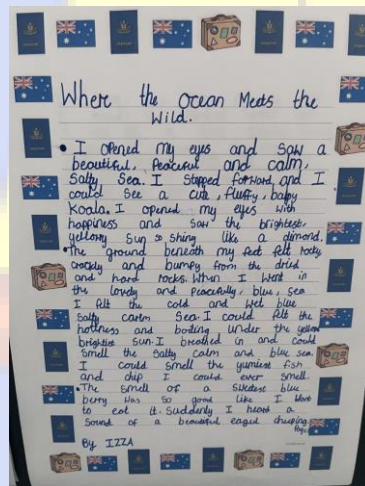 Where the Ocean Meets the
Wild.
• I opened my eyes and saw a
beautiful, Peaceful and calm,
Salty Sea. I stepped forward, and I
could see a cute, fluffy, baby
Koala. I opened my eyes with
happiness and saw the brightest,
yellowy sun so shing like a dimond.
• The ground beneath my feet felt rocky,
crackly and bumpy from the dried
and hard rocks. When I went in
the lovely and Peacefully, blue, sea
I felt the cold and wet blue
Salty calm Sea. I could felt the
hotness and boiling under the yellow
brightist sun. I breathed in and could
smell the salty calm and blue sea.
I could smell the yumiest fish
and chip I could ever smell.
• The smell of a sweatest blue
berry was so good like I want
to eat it. Suddenly I heard a
sound of a beautiful eagel cheeping
By IZZA